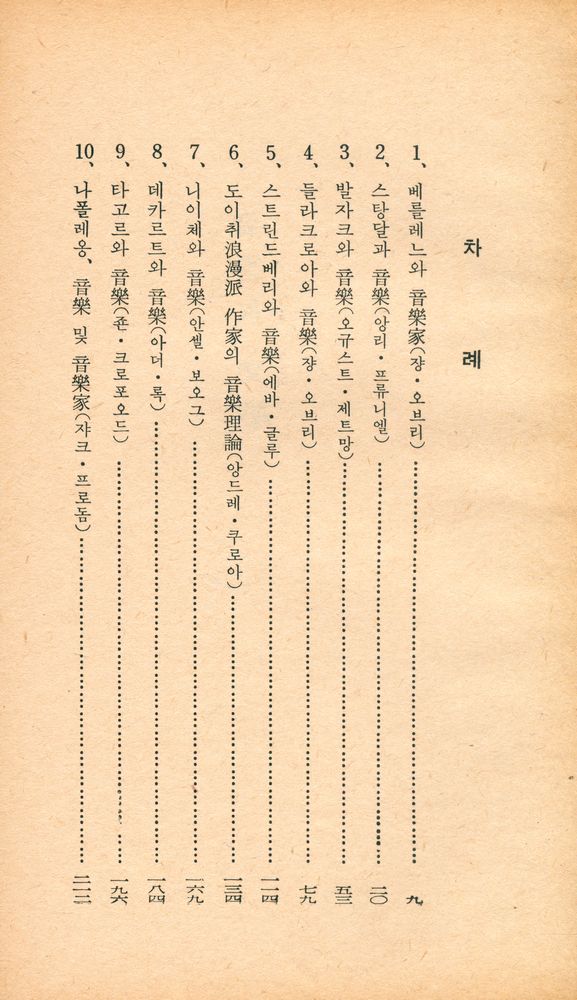 차 례
1、 베를레느와 音樂家(쟝・오브리)……九
2、 스탕달과 音樂(앙리・프류니엘)……二〇
3、 발자크와 音樂(오규스트・제트망)……五三
4、 들라크로아와 音樂(쟝・오브리)……七九
5、 스트린드베리와 音樂(에바・글루)……一一四
6、 도이취浪漫派 作家의 音樂理論(앙드레・쿠로아)……一三四
7、 니이체와 音樂(안셀・보오그)……一六九
8、 데카르트와 音樂(아더・록)……一八四
9、 타고르와 音樂(죤・크로포오드)……一九六
10、 나폴레옹、音樂 및 音樂家(쟈크・프로돔)……二一二